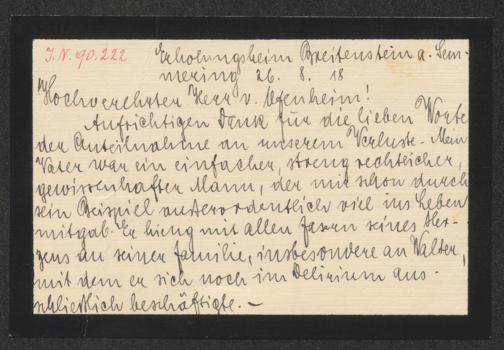 J.N. 90.222
Erholungsheim Breitenstein a. Sem-
mering 26. 8. 18
Hochverehrter Herr v. Ofenheim!
Aufrichtigen Dank für die lieben Worte
der Anteilnahme an unserem Verluste. Mein
Vater war ein einfacher, streng rechtlicher,
gewissenhafter Mann, der mir schon durch
sein Beispiel ausserordentlich viel ins Leben
mitgab. Er hieng mit allen Fasern seines Her-
zens an seiner Familie, insbesondere an Walter,
mit dem er sich noch im Delirium aus-
schließlich beschäftigte. –